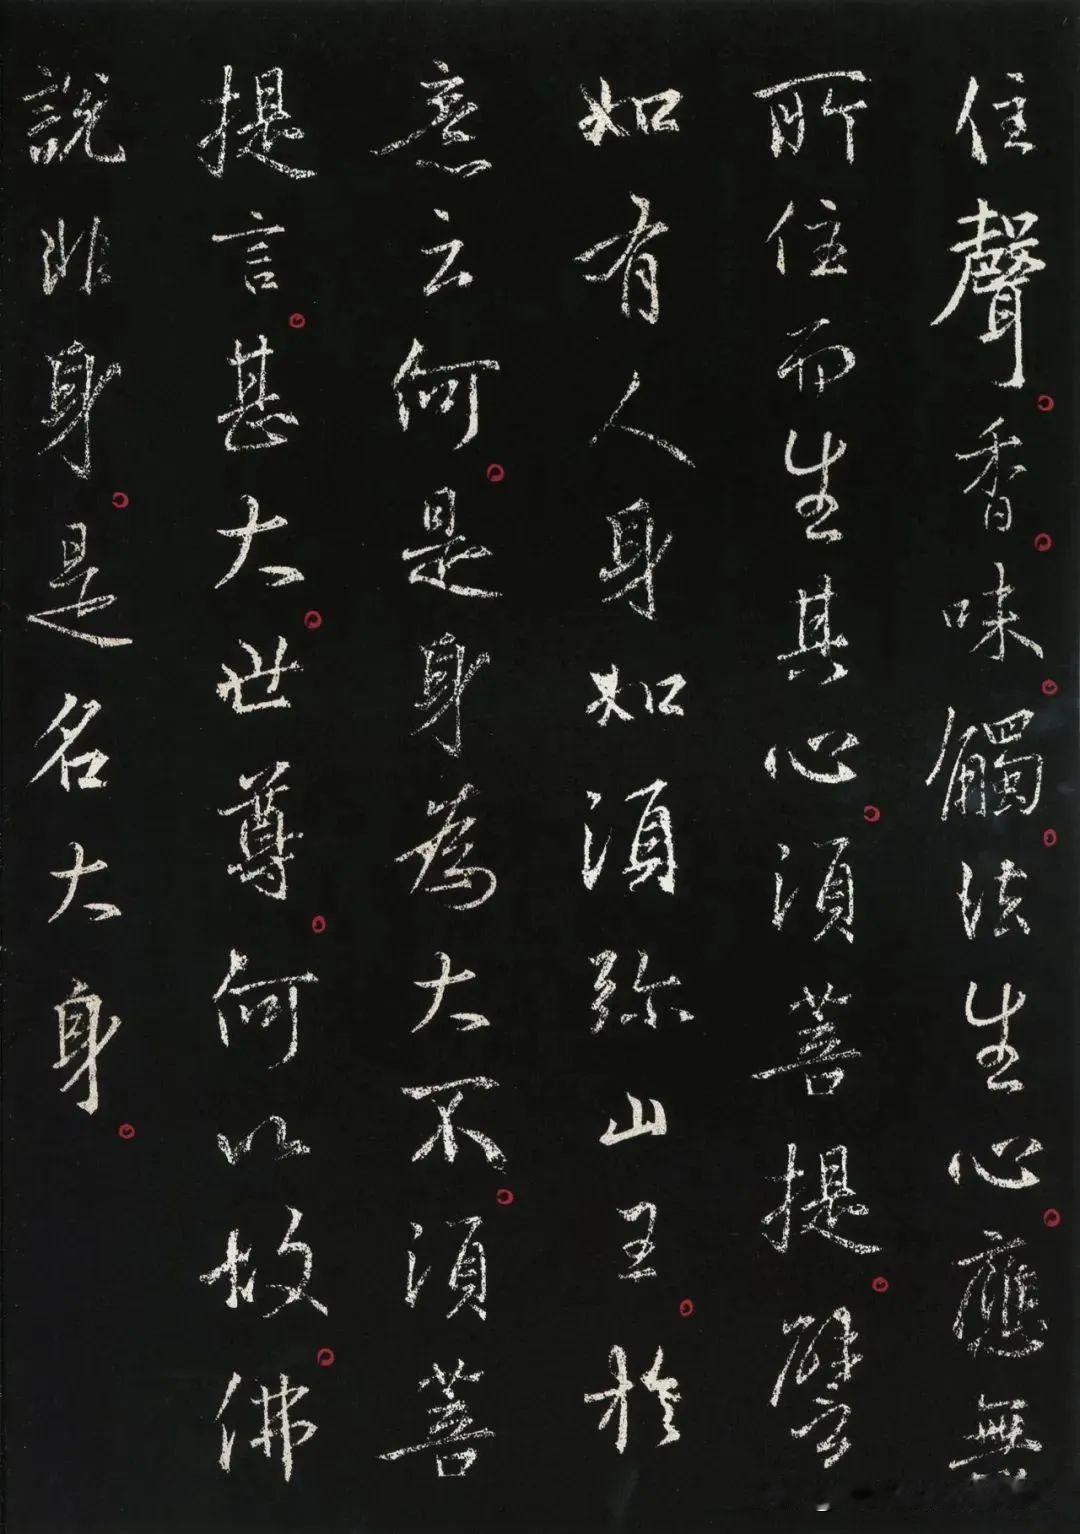 住聲。香。味。觸。法生心。應無
所住而生其心。須菩提。譬
如有人身如須弥山王。於
意云何。是身為大不。須菩
提言。甚大。世尊。何以故。佛
說非身。是名大身。